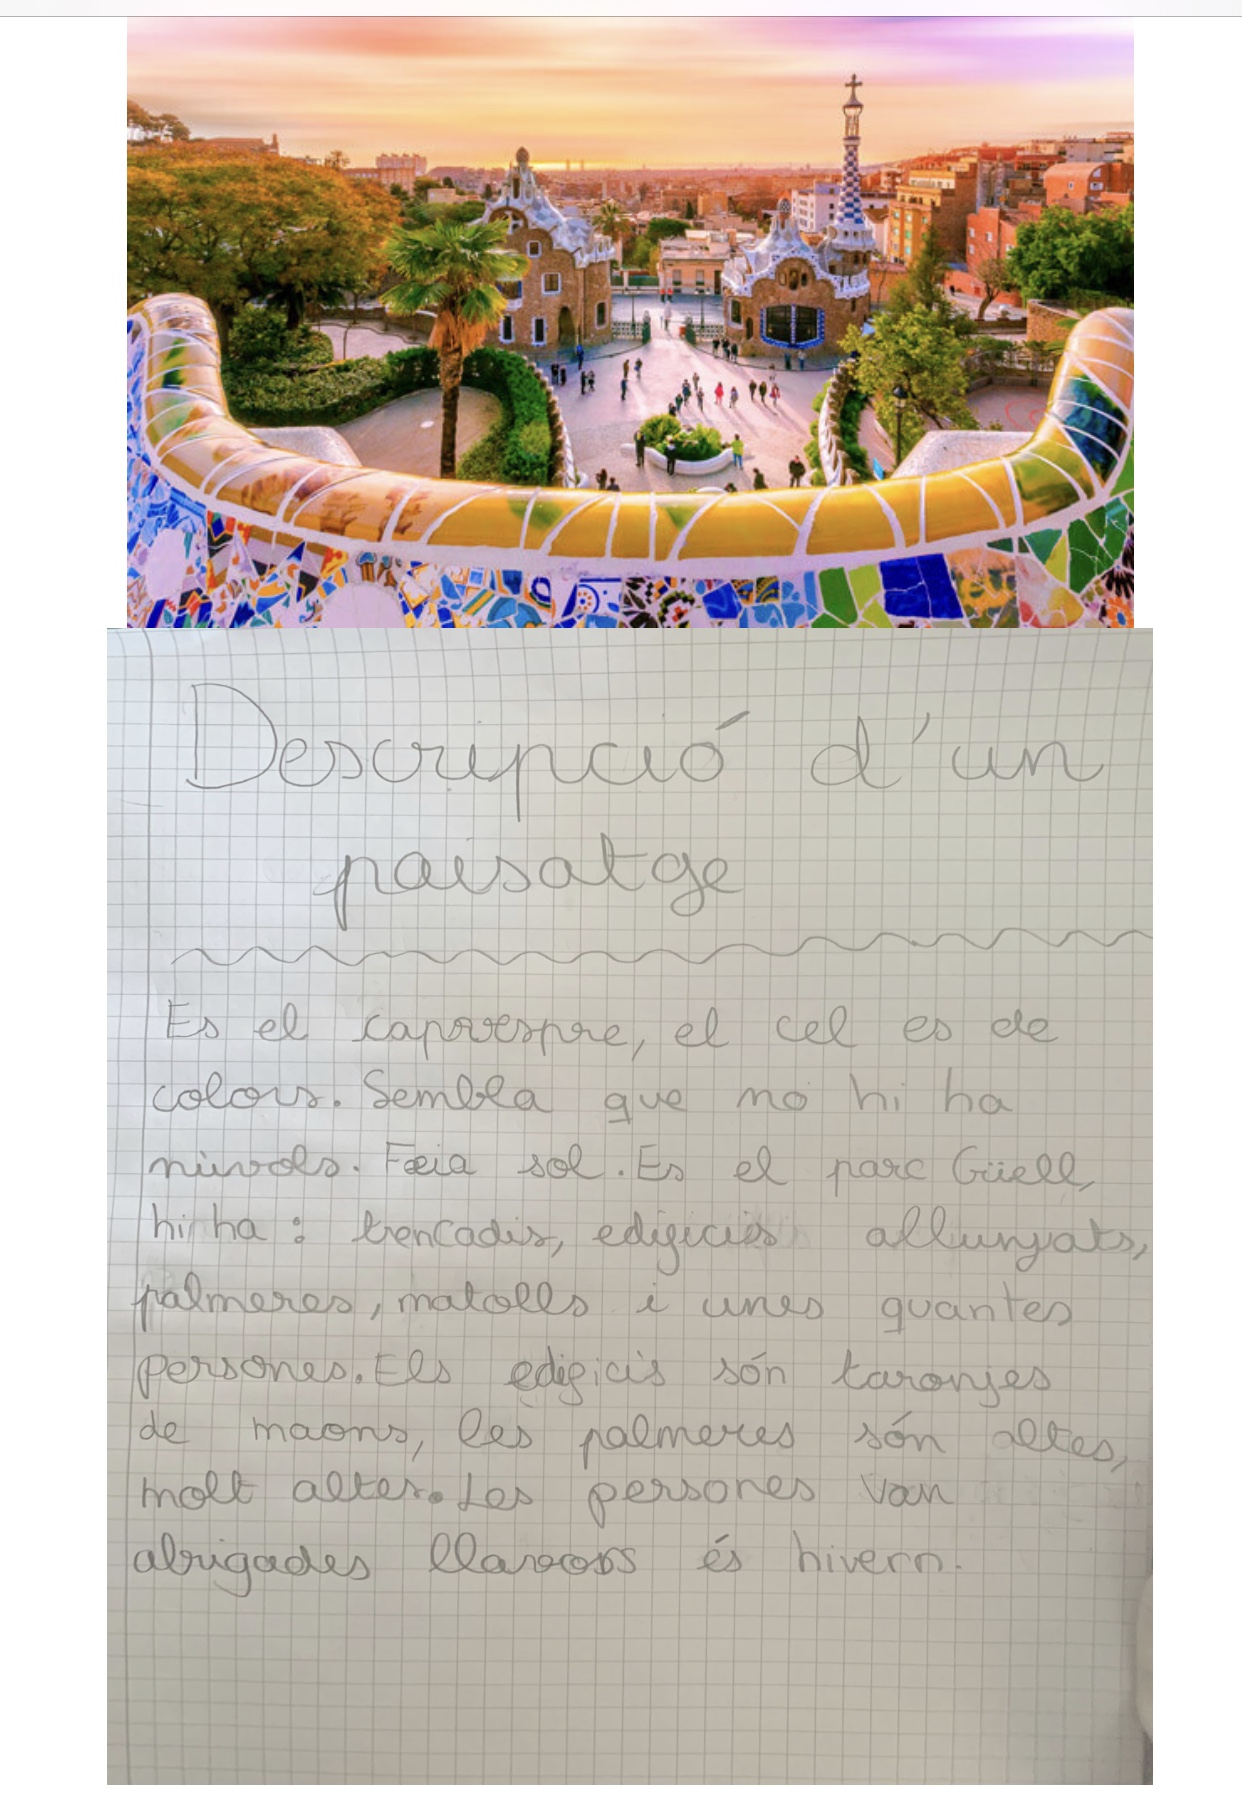 Descripció d'un
paisatge
Es el capvespre, el cel es de
colors. Sembla que no hi ha
núvols. Feia sol. Es el parc Güell,
hi ha: trencadis, edificis allunyats,
palmeres, matolls i unes quantes
persones. Els edificis són taronjes
de maons, les palmeres són altes,
molt altes. Les persones van
abrigades llavors és hivern.